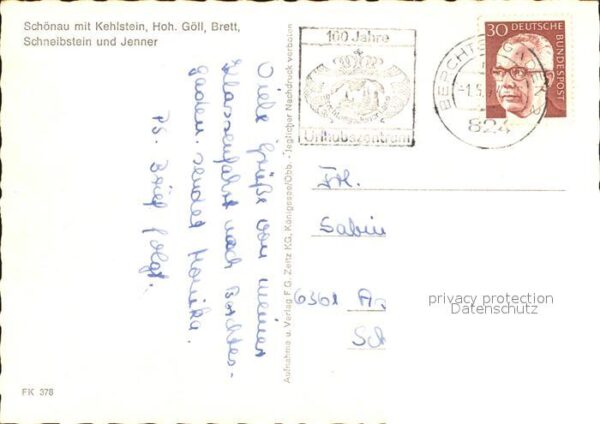 Schönau mit Kehlstein, Hoh. Göll, Brett,
Schneibstein und Jenner
Viele Grüße von meiner
Klassenfahrt nach Berchtes-
gaden. sendet Monika.
PS. Brief folgt.
Aufnahme u. Verlag F.G. Zeitz KG, Königssee/Obb. - Jeglicher Nachdruck verboten
100 Jahre
Urlaubszentrum
BERCHTESGADEN
824
30 DEUTSCHE
BUNDESPOST
Frl.
Sabin
6361
Sch
privacy protection
Datenschutz
FK 378